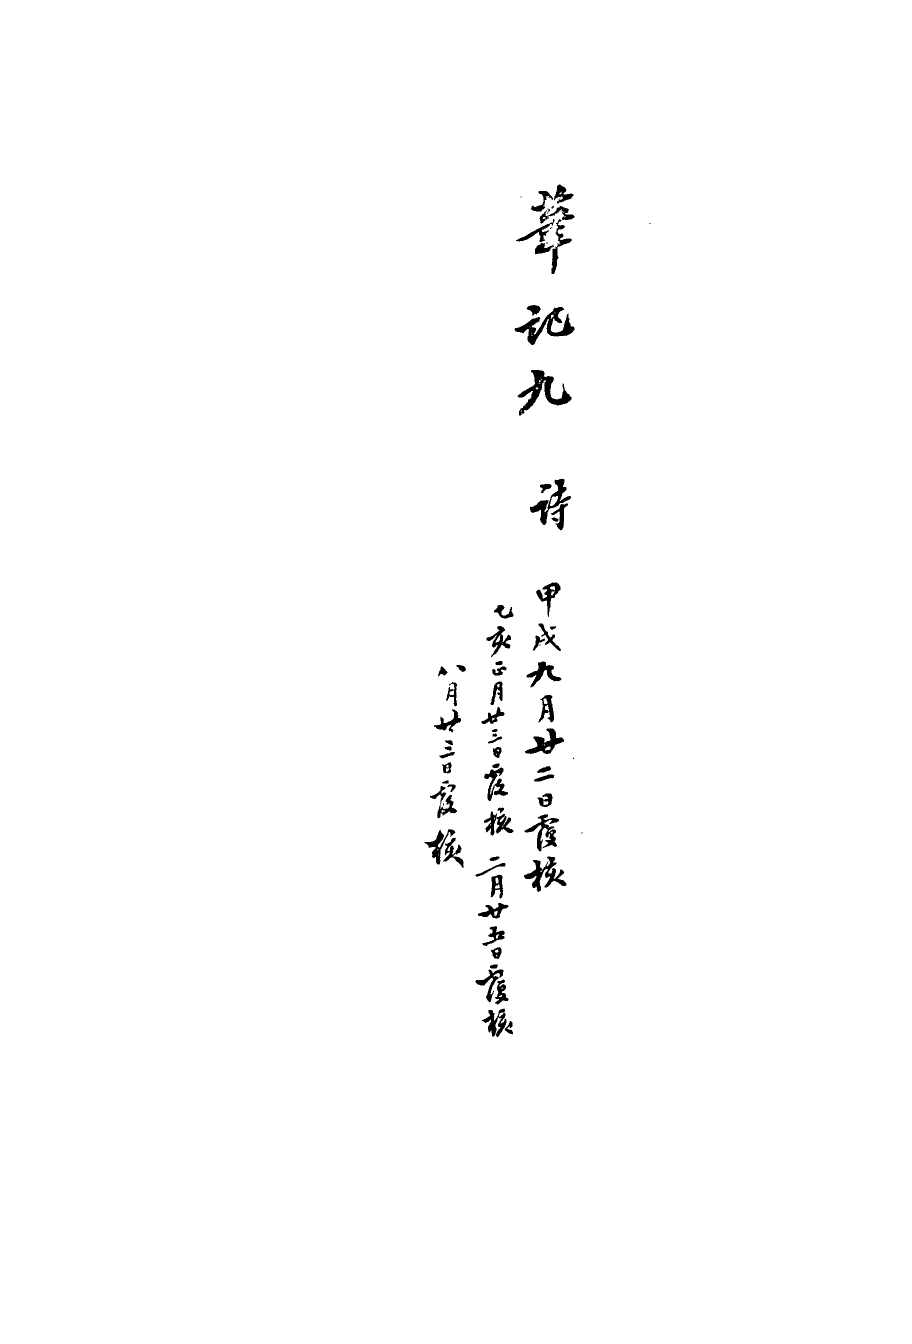 筆記九　詩　甲戌九月廿二日覆核
乙亥正月廿三日覆核　二月廿五日覆核
八月廿三日覆核